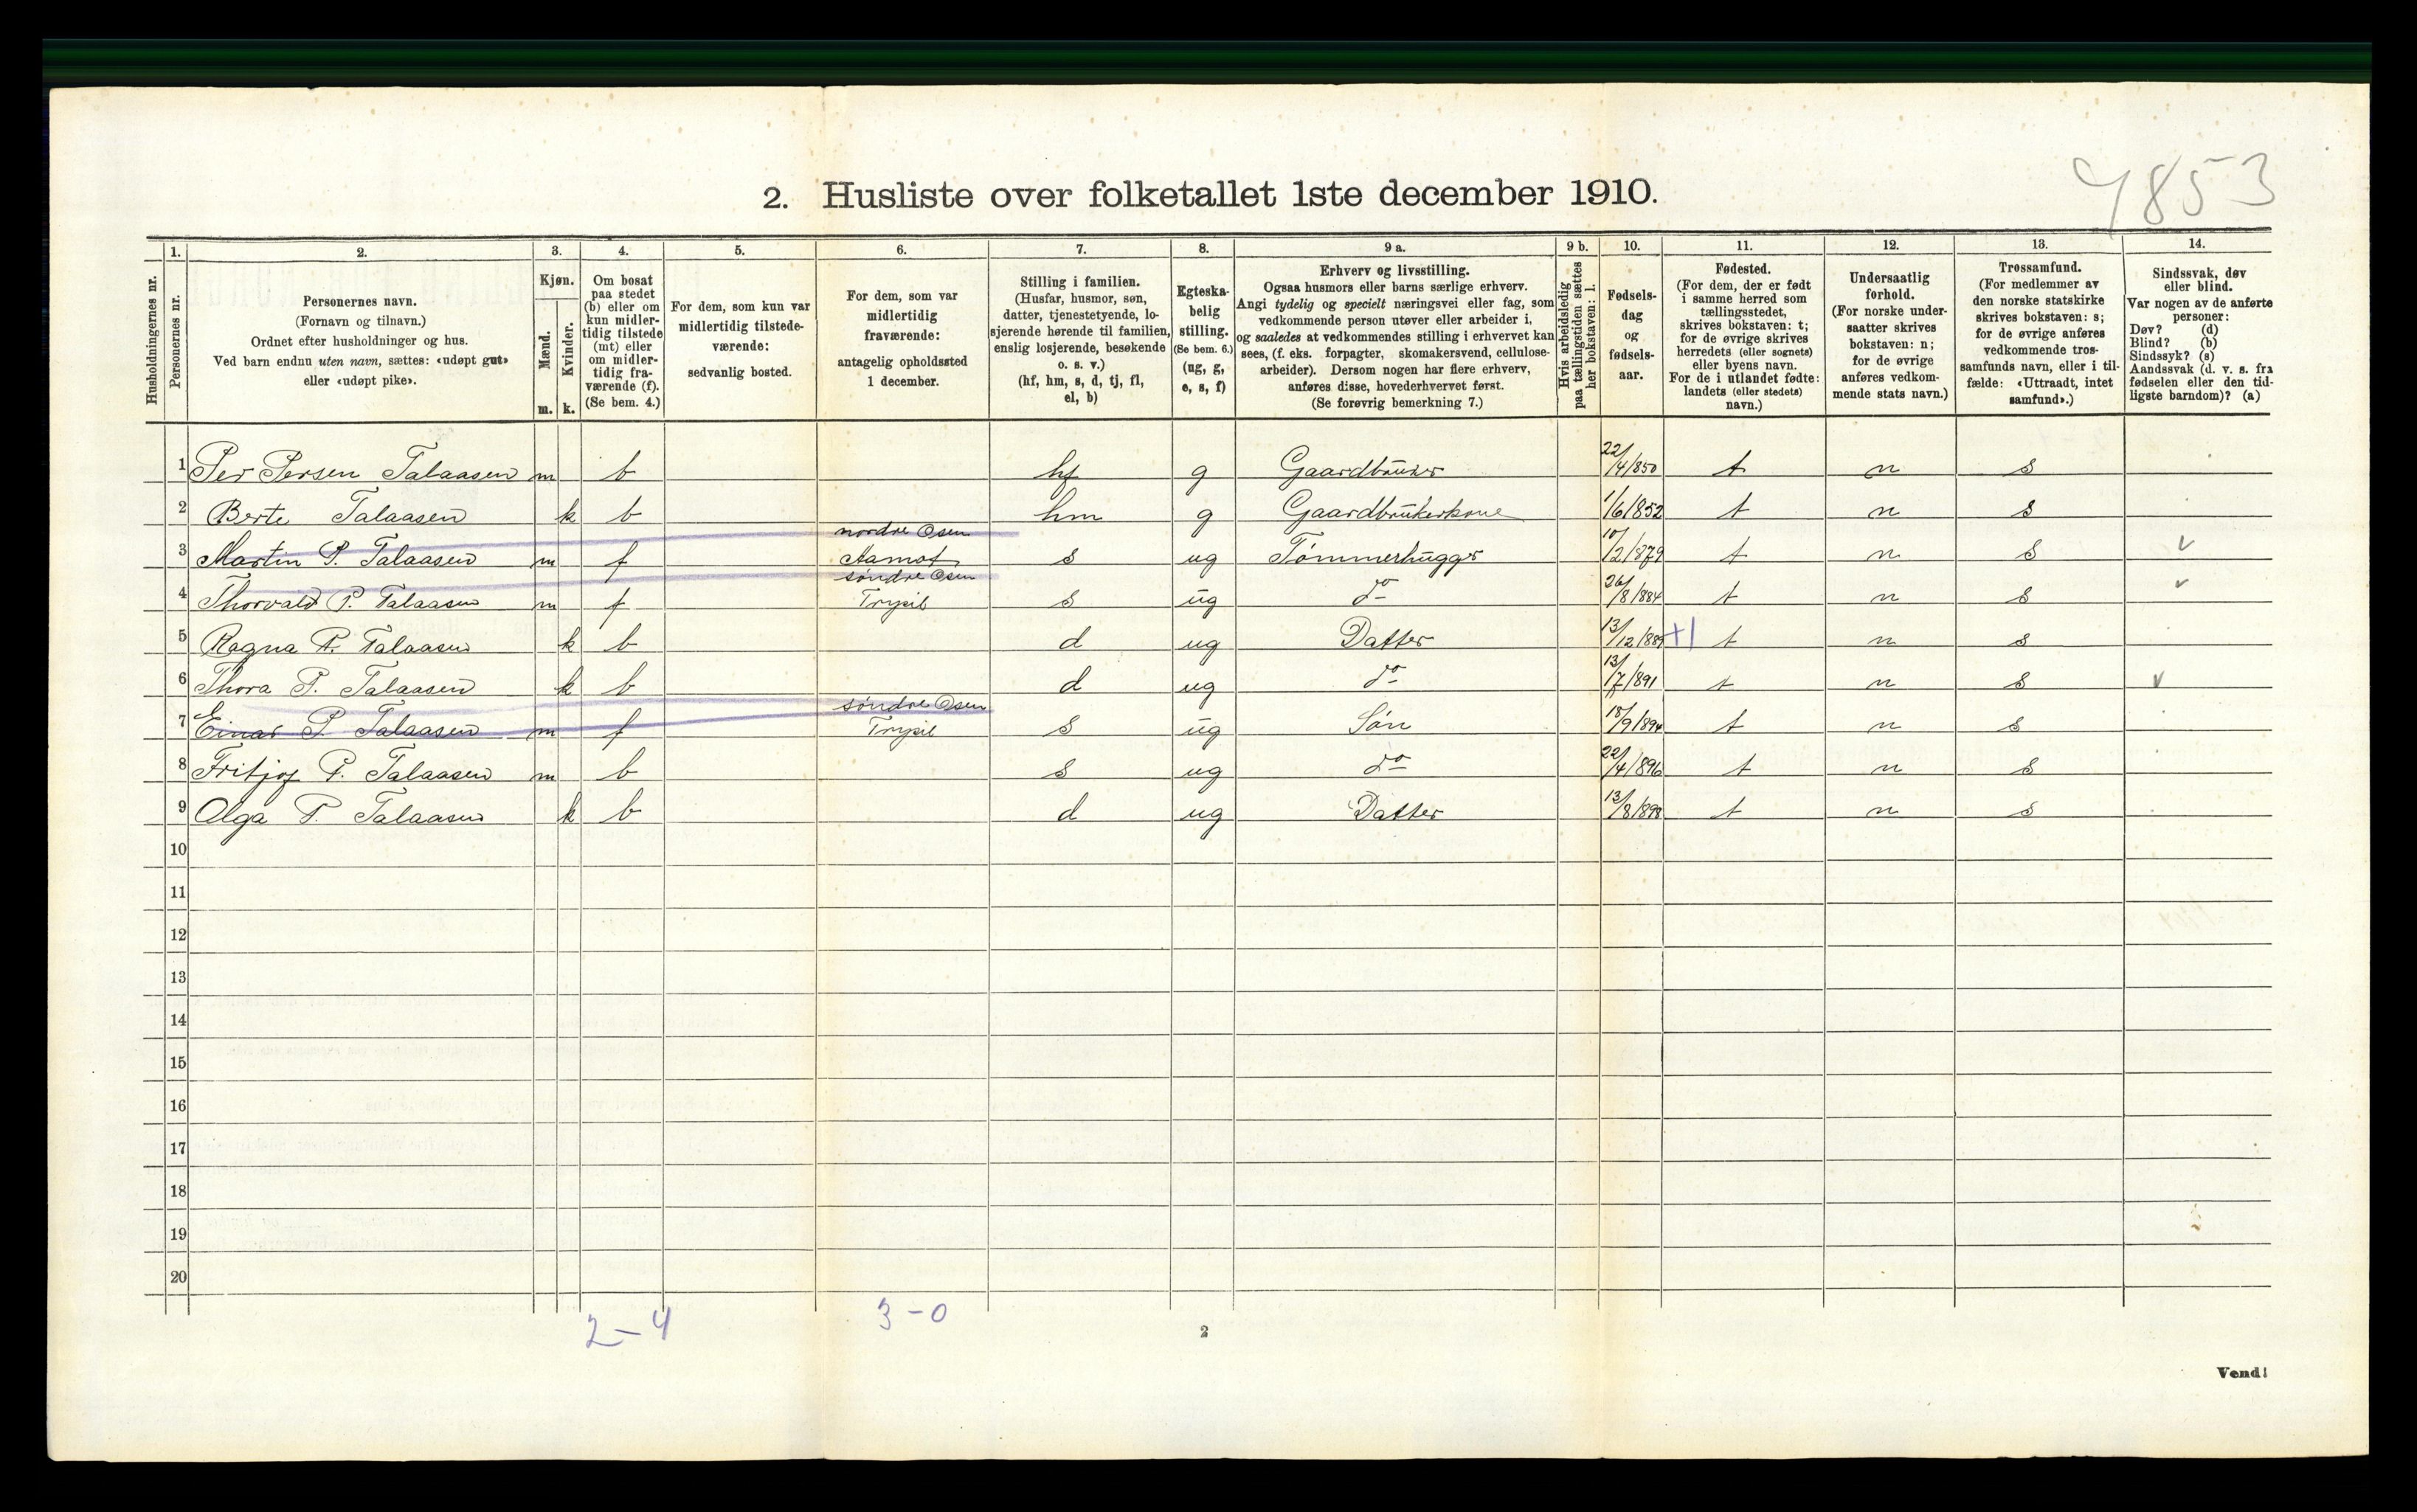 4853
2. Husliste over folketallet 1ste december 1910.
Husholdningernes nr.
1. Personernes nr.
2. Personernes navn. (Fornavn og tilnavn.) Ordnet efter husholdninger og hus. Ved barn endnu uten navn, sættes: «udøpt gut» eller «udøpt pike».
3. Kjøn. Mænd. m. Kvinder. k.
4. Om bosat paa stedet (b) eller om kun midlertidig tilstede (mt) eller om midlertidig fraværende (f). (Se bem. 4.)
5. For dem, som kun var midlertidig tilstedeværende: sedvanlig bosted.
6. For dem, som var midlertidig fraværende: antagelig opholdssted 1 december.
7. Stilling i familien. (Husfar, husmor, søn, datter, tjenestetyende, losjerende hørende til familien, enslig losjerende, besøkende o. s. v.) (hf, hm, s, d, tj, fl, el, b)
8. Egteskabelig stilling. (Se bem. 6.) (ug, g, e, s, f)
9 a. Erhverv og livsstilling. Ogsaa husmors eller barns særlige erhverv. Angi tydelig og specielt næringsvei eller fag, som vedkommende person utøver eller arbeider i, og saaledes at vedkommendes stilling i erhvervet kan sees, (f. eks. forpagter, skomakersvend, cellulosearbeider). Dersom nogen har flere erhverv, anføres disse, hovederhvervet først. (Se forøvrig bemerkning 7.)
9 b. Hvis arbeidsledig paa tællingstiden sættes her bokstaven: l.
10. Fødselsdag og fødselsaar.
11. Fødested. (For dem, der er født i samme herred som tællingsstedet, skrives bokstaven: t; for de øvrige skrives herredets (eller sognets) eller byens navn. For de i utlandet fødte: landets (eller stedets) navn.)
12. Undersaatlig forhold. (For norske undersaatter skrives bokstaven: n; for de øvrige anføres vedkommende stats navn.)
13. Trossamfund. (For medlemmer av den norske statskirke skrives bokstaven: s; for de øvrige anføres vedkommende trossamfunds navn, eller i tilfælde: «Uttraadt, intet samfund».)
14. Sindssvak, døv eller blind. Var nogen av de anførte personer: Døv? (d) Blind? (b) Sindssyk? (s) Aandssvak (d. v. s. fra fødselen eller den tidligste barndom)? (a)
1 Per Persen Talaasen m b hf g Gaardbruker 22/4/850 t n s
2 Berte Talaasen k b hm g Gaardbrukerkone 1/6/852 t n s
3 Martin P. Talaasen m f nordre Osen Aamot s ug Tømmerhugger 10/2/879 t n s v
4 Thorvald P. Talaasen m f søndre Osen Trysil s ug do 26/8/884 t n s v
5 Ragna P. Talaasen k b d ug Datter 13/12/889 +1 t n s
6 Thora P. Talaasen k b d ug do 13/7/891 t n s v
7 Einar P. Talaasen m f søndre Osen Trysil s ug Søn 18/9/894 t n s
8 Fritjof P. Talaasen m b s ug do 22/4/896 t n s
9 Olga P. Talaasen k b d ug Datter 13/8/898 t n s
10
11
12
13
14
15
16
17
18
19
20
2-4 3-0
2
Vend!